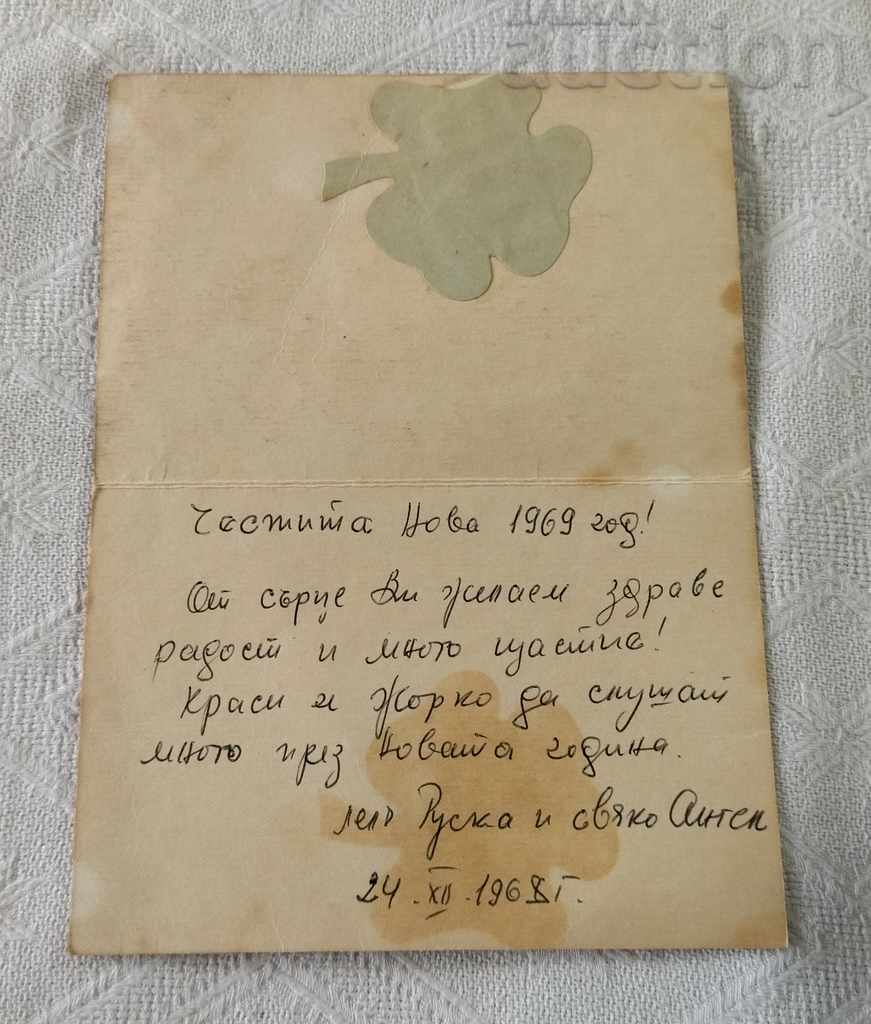 auction
Честита Нова 1969 год!
От сърце Ви желаем здраве
радост и много щастие!
Краси и Жорко да слушат
много през новата година.
леля Руска и свяко Ангел
24.XII.1968 г.